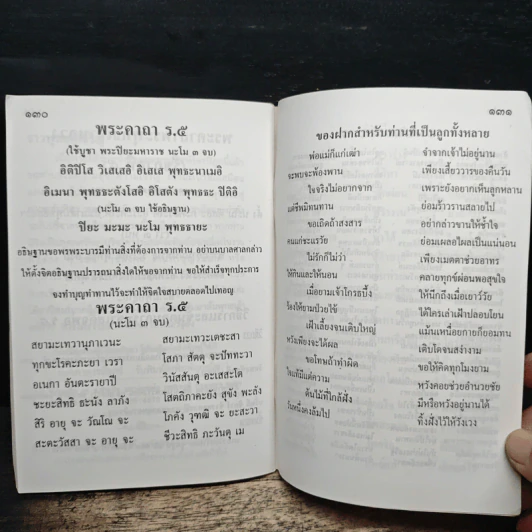 ๑๓๐
พระคาถา ร.๕
(ใช้บูชา พระปิยะมหาราช นะโม ๓ จบ)
อิติปิโส วิเสเสอิ อิเสเส พุทธะนาเมอิ
อิเมนา พุทธะตังโสอิ อิโสตัง พุทธะ ปิติอิ
(นะโม ๓ จบ ใช้อธิษฐาน)
ปิยะ มะมะ นะโม พุทธายะ
อธิษฐานขอพรพระบารมีท่านสิ่งที่ต้องการจากท่าน อย่าบนบาศาลกล่าว
ให้ตั้งจิตอธิษฐานปรารถนาสิ่งใดให้ขอจากท่าน ขอให้สำเร็จทุกประการ
จงทำบุญทำทานไว้จะทำให้จิตใจสบายตลอดไปเทอญ
พระคาถา ร.๕
(นะโม ๓ จบ)
สยามะเทวานุภาเวนะ สยามะเทวะเตชะสา
ทุกขะโรคะภะยา เวรา โสกา สัตตุ จะปัททะวา
อเนกา อันตะรายาปี วินัสสันตุ อะเสสะโต
ชะยะสิทธิ ธะนัง ลาภัง โสตถิภาคะยัง สุขัง พะลัง
สิริ อายุ จะ วัณโณ จะ โภคัง วุฑฒิ จะ ยะสะวา
สะตะวัสสา จะ อายู จะ ชีวะสิทธิ ภะวันตุ เม
๑๓๑
ของฝากสำหรับท่านที่เป็นลูกทั้งหลาย
พ่อแม่ก็แก่เฒ่า จำจากเจ้าไม่อยู่นาน
จะพบจะพ้องพาน เพียงเสี้ยววารของคืนวัน
ใจจริงไม่อยากจาก เพราะยังอยากเห็นลูกหลาน
แต่ชีพมิทนทาน ย่อมร้าวรานสลายไป
ขอเถิดถ้าสงสาร อย่ากล่าวขานให้ช้ำใจ
คนแก่ชะแรวัย ย่อมเผลอไผลเป็นแน่นอน
ไม่รักก็ไม่ว่า เพียงเมตตาช่วยอาทร
ให้กินและให้นอน คลายทุกข์ผ่อนพอสุขใจ
เมื่อยามเจ้าโกรธขึ้ง ให้นึกถึงเมื่อเยาว์วัย
ร้องไห้ยามป่วยไข้ ได้ใครเล่าเฝ้าปลอบโยน
เฝ้าเลี้ยงจนเติบใหญ่ แม้นเหนื่อยกายก็ยอมทน
หวังเพียงจะได้ผล เติบโตจนสง่างาม
ขอโทษถ้าทำผิด ขอให้คิดทุกโมงยาม
ใจแท้มีแต่ความ หวังคอยช่วยอำนวยชัย
ต้นไม้ที่ใกล้ฝั่ง มีหรือหวังอยู่นานได้
วันหนึ่งคงล้มไป ทิ้งฝั่งไว้ให้วังเวง